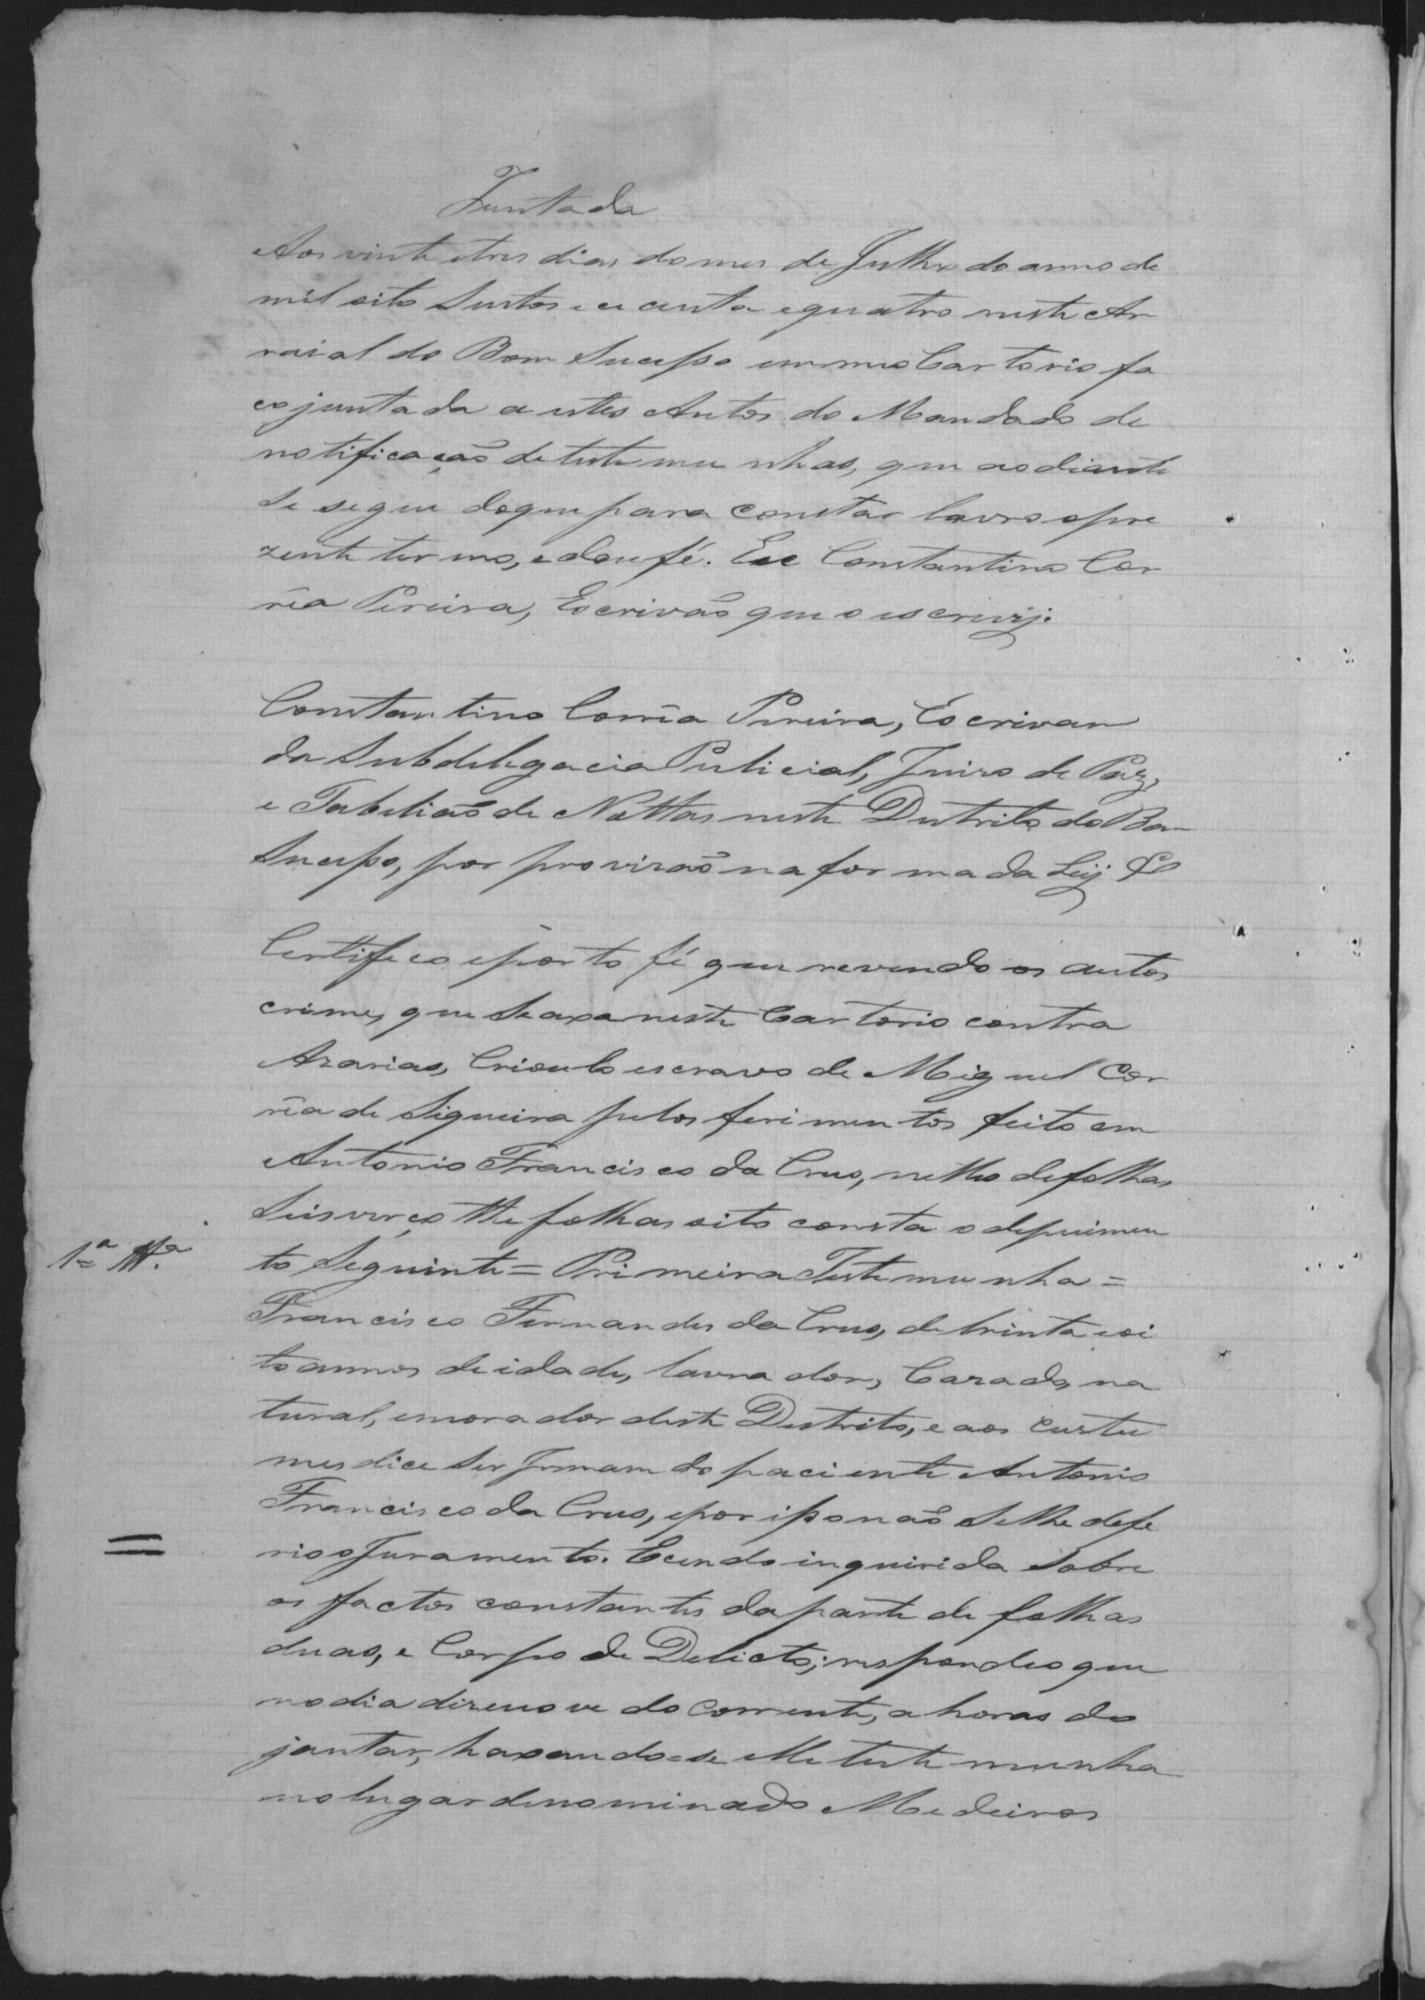 Juntada
Aos vinte etres dias do mes de Julho do anno de
mil oito Sentos e cecenta equatro neste Ar
raial do Bom Sucesso em meo Cartorio fa
co juntada a estes Autos do Mandado de
notificação de testemunhas, que ao diante
Se segue doque para constar lavro o pre
zente termo, e doufé. Eu Constantino Cor
rêa Pereira, Escrivão que o escrevij.
Constantino Corrêa Pereira, Escrivam
da Subdelegacia Pulicial, Juizo de Paz,
e Tabelião de Nottas neste Destrito do Bom
Sucesso, por provizão na forma da Leij &
Certtifico eporto fé que revendo os autos
crime, que Seaxa neste Cartorio contra
Azarias, Crioulo escravo de Miguel Cor
rêa de Siqueira pelos ferimentos feito em
Antonio Francisco da Crus, nelles defolhas
Seis verço tthe folhas oito consta o depuimen
1ª ttª. to Seguinte = Primeira Testemunha =
Francisco Fernandes da Crus, de trinta eoi
to annos de idade, lavrador, Cazado, na
tural, emorador deste Destrito, e aos custu
mes dice Ser Jrmam do paciente Antonio
Francisco da Crus, epor isso não Selhe defe
rio o Juramento. Ecendo inquirida Sobre
os factos constantes da parte de folhas
duas, e Corpo de Delicto; respondeo que
no dia dizenove do corrente, a horas do
jantar, haxando=se elle testemunha
no lugar denominado Medeiros